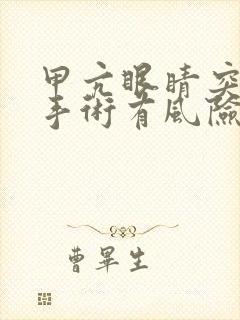 甲亢眼睛突
手術有風險
曹畢生